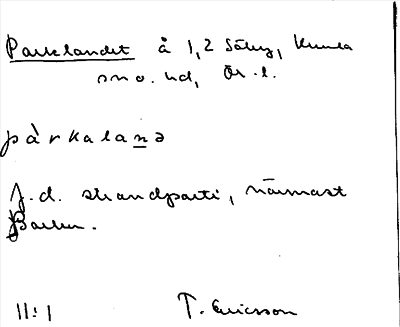 Parklandet å 1,2 Säby, Kumla
sn o. hd, Ör. l.
pàrkalanə
J.d. strandparti, närmast
Parken.
11:1 T. Ericsson